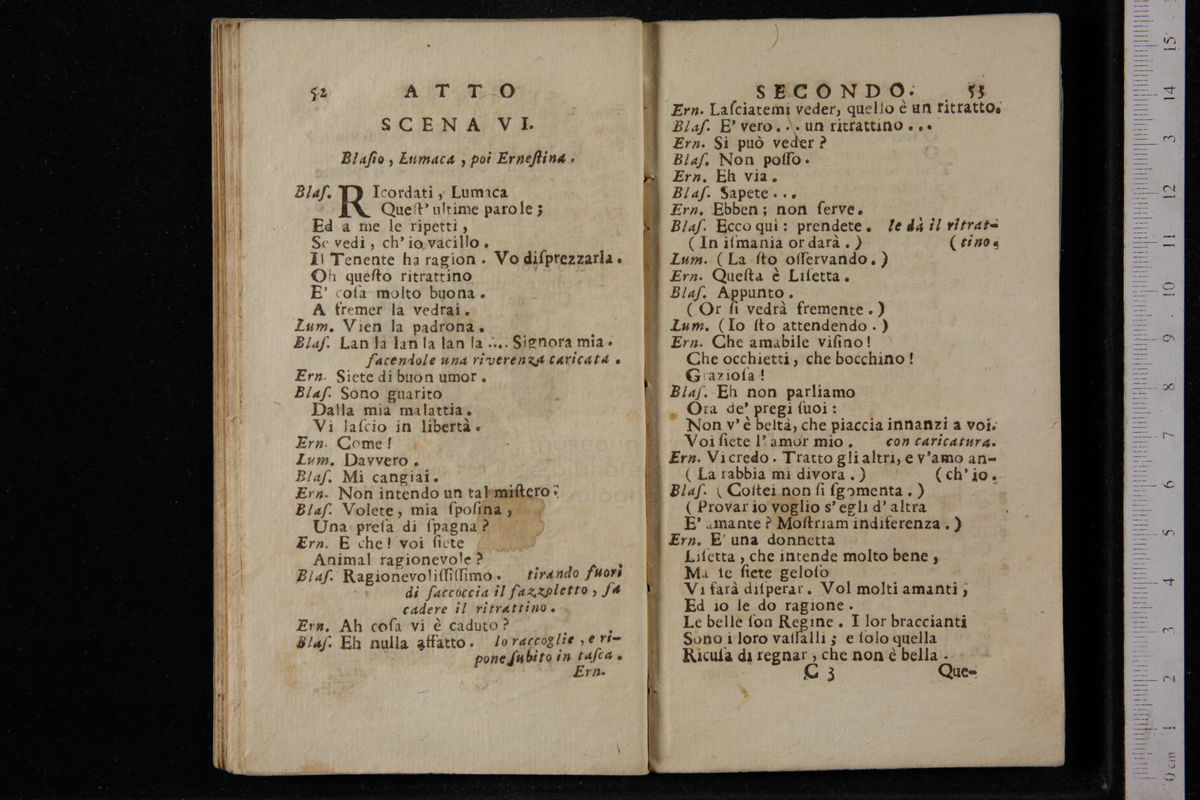 52 ATTO
SCENA VI.
Blaſio, Lumaca, poi Erneſtina.
Blaſ. RIcordati, Lumaca
Queſt' ultime parole;
Ed a me le ripetti,
Se vedi, ch' io vacillo.
Il Tenente ha ragion. Vo diſprezzarla.
Oh queſto ritrattino
E' coſa molto buona.
A fremer la vedrai.
Lum. Vien la padrona.
Blaſ. Lan la lan la lan la .... Signora mia.
facendole una riverenza caricata.
Ern. Siete di buon umor.
Blaſ. Sono guarito
Dalla mia malattia.
Vi laſcio in libertà.
Ern. Come!
Lum. Davvero.
Blaſ. Mi cangiai.
Ern. Non intendo un tal miſtero:
Blaſ. Volete, mia ſpoſina,
Una preſa di ſpagna?
Ern. E che! voi ſiete
Animal ragionevole?
Blaſ. Ragionevoliſſiſſimo. tirando fuori
di ſaccoccia il fazzoletto, fa
cadere il ritrattino.
Ern. Ah coſa vi è caduto?
Blaſ. Eh nulla affatto. lo raccoglie, e ri-
pone ſubito in taſca.
Ern.
SECONDO. 53
Ern. Laſciatemi veder, quello è un ritratto.
Blaſ. E' vero... un ritrattino...
Ern. Si può veder?
Blaſ. Non poſſo.
Ern. Eh via.
Blaſ. Sapete...
Ern. Ebben; non ſerve.
Blaſ. Ecco qui: prendete. le dà il ritrat-
(In iſmania or darà.) (tino.
Lum. (La ſto oſſervando.)
Ern. Queſta è Liſetta.
Blaſ. Appunto.
(Or ſi vedrà fremente.)
Lum. (Io ſto attendendo.)
Ern. Che amabile viſino!
Che occhietti, che bocchino!
Grazioſa!
Blaſ. Eh non parliamo
Ora de' pregi ſuoi:
Non v' è beltà, che piaccia innanzi a voi.
Voi ſiete l' amor mio. con caricatura.
Ern. Vi credo. Tratto gli altri, e v'amo an-
(La rabbia mi divora.) (ch' io.
Blaſ. (Coſtei non ſi ſgomenta.)
(Provar io voglio s' egli d' altra
E' amante? Moſtriam indiferenza.)
Ern. E' una donnetta
Liſetta, che intende molto bene,
Ma ſe ſiete geloſo
Vi farà diſperar. Vol molti amanti;
Ed io le do ragione.
Le belle ſon Regine. I lor braccianti
Sono i loro vaſſalli; e ſolo quella
Ricuſa di regnar, che non è bella.
C 3 Que-